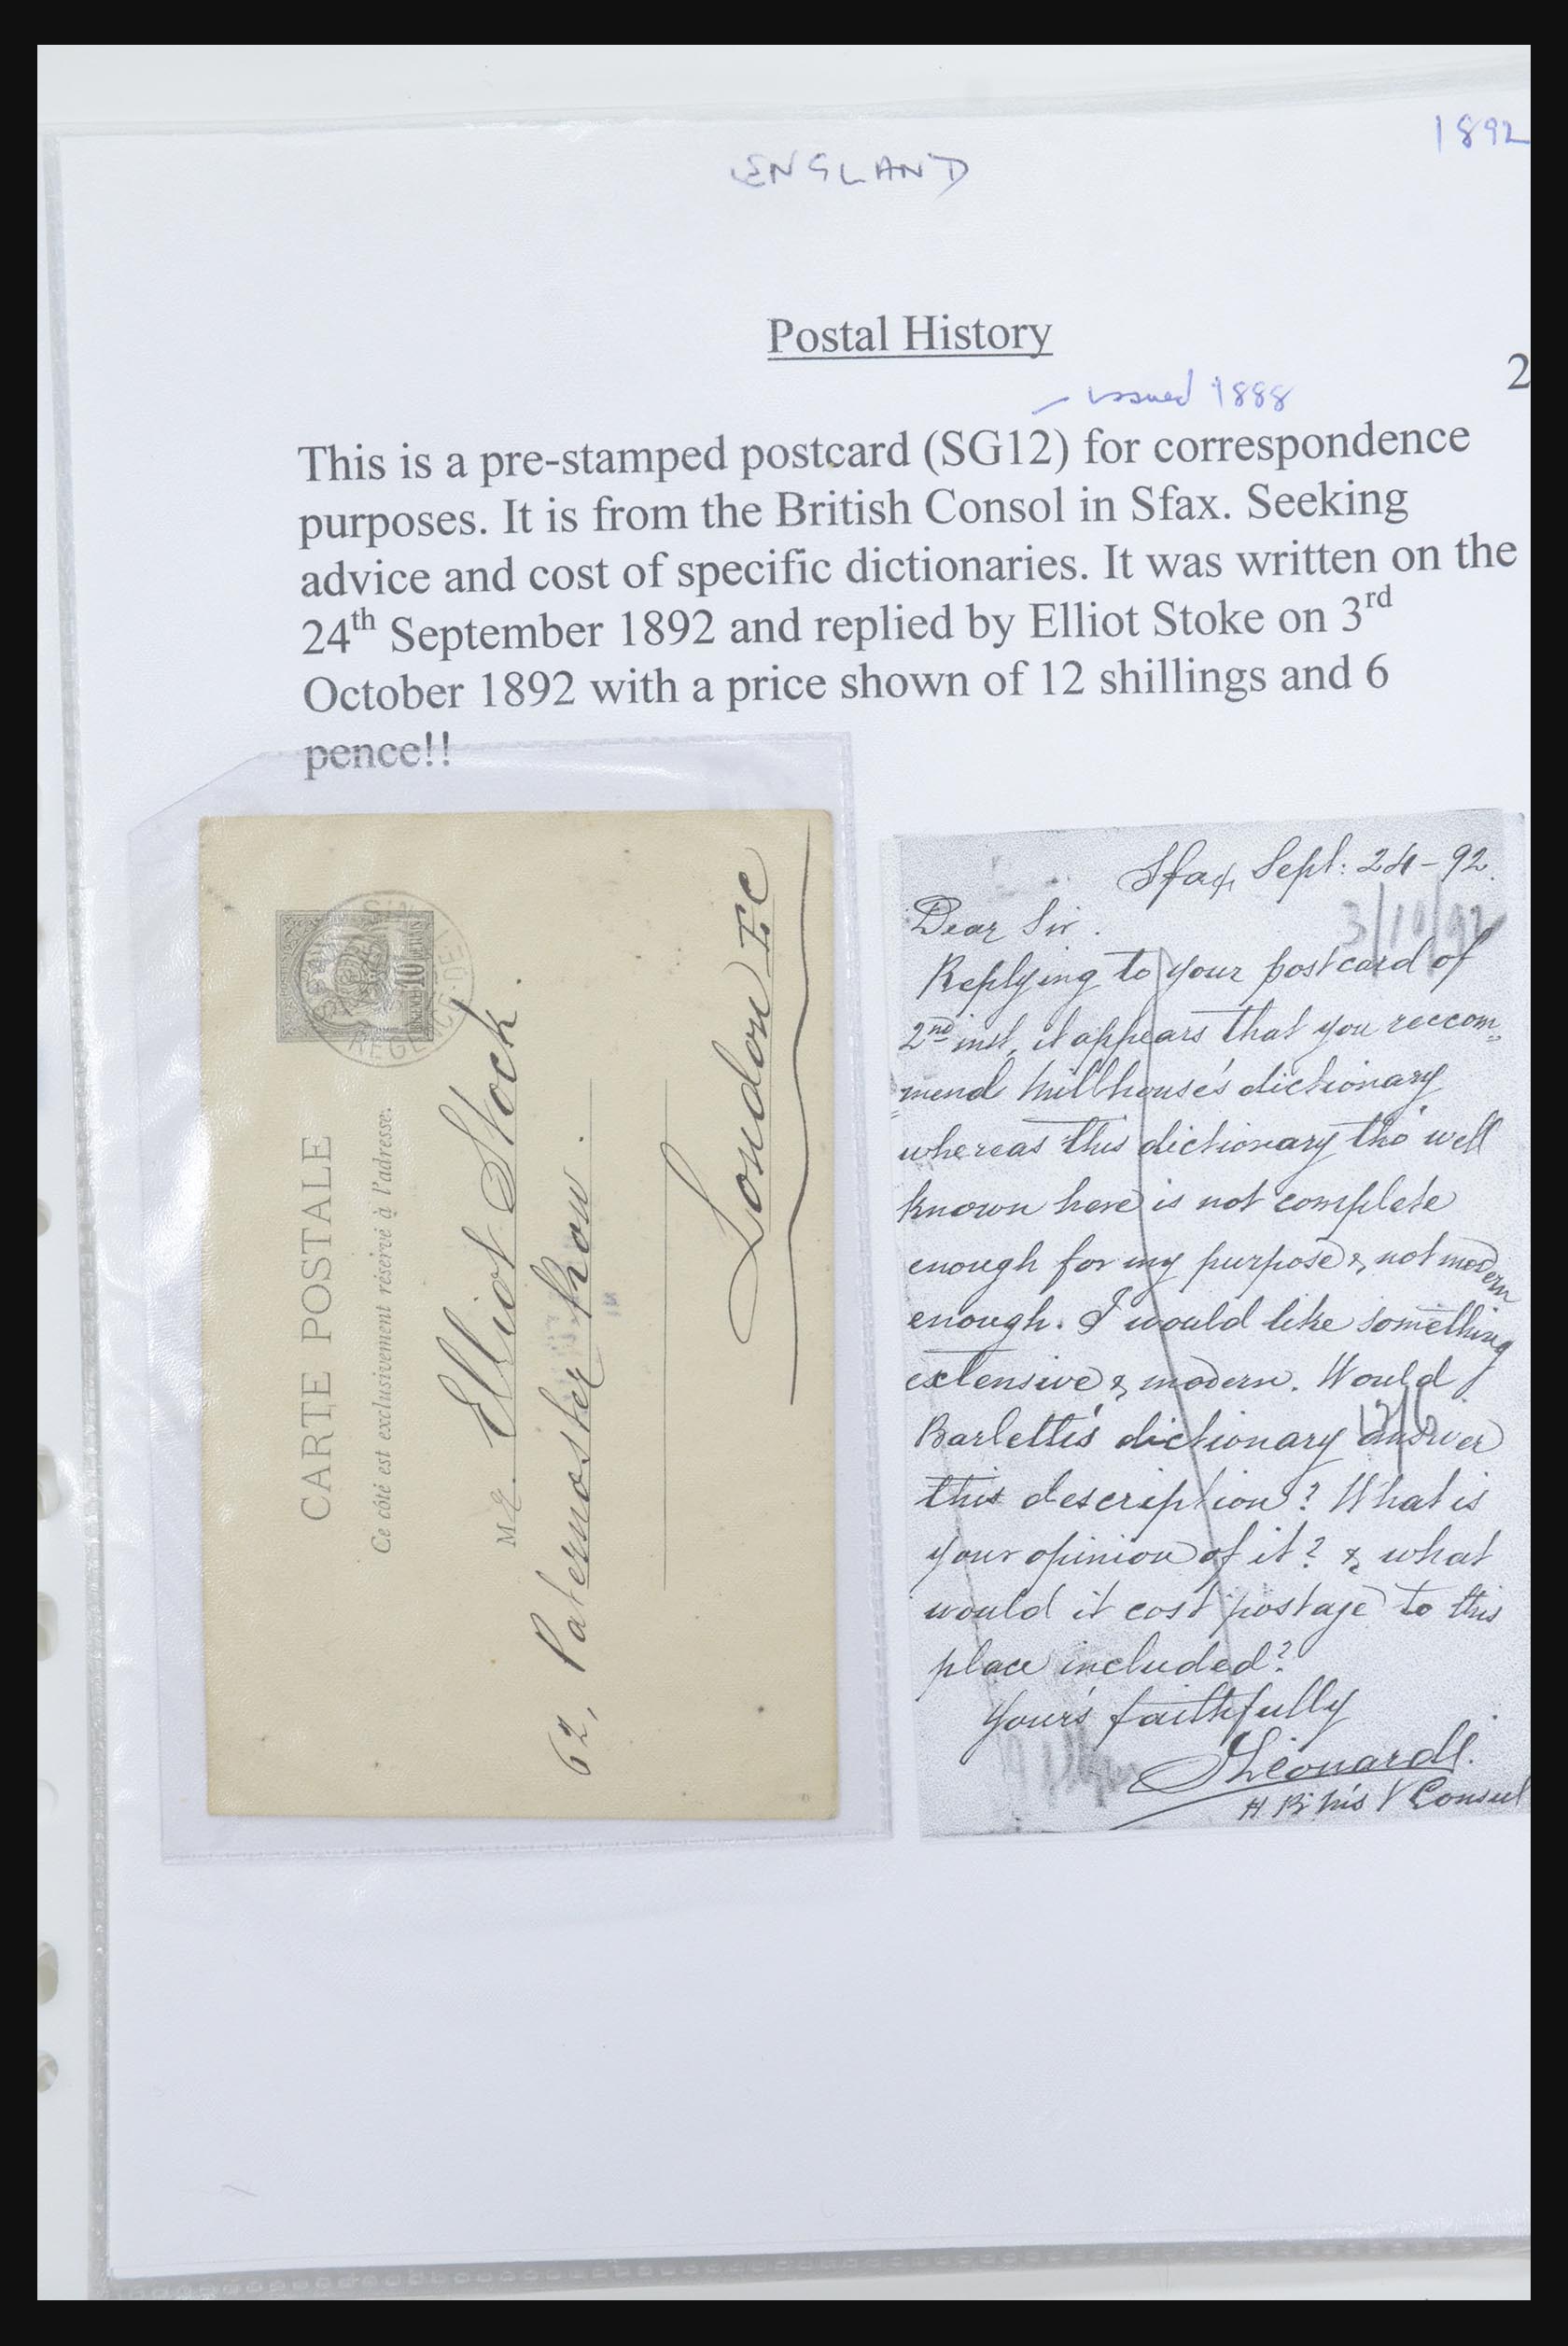 1892
ENGLAND
Postal History
2
issued 1888
This is a pre-stamped postcard (SG12) for correspondence
purposes. It is from the British Consol in Sfax. Seeking
advice and cost of specific dictionaries. It was written on the
24th September 1892 and replied by Elliot Stoke on 3rd
October 1892 with a price shown of 12 shillings and 6
pence!!
10
CARTE POSTALE
Ce côté est exclusivement réservé à l'adresse.
Mr. Elliot Stock.
62, Paternoster Row.
London EC
Sfax, Sept: 24-92.
3/10/92
Dear Sir.
Replying to your postcard of
2nd inst, it appears that you reccom=
=mend Millhouse's dictionary
whereas this dictionary tho' well
known here is not complete
enough for my purpose & not modern
enough. I would like something
extensive & modern. Would
12/6
Barletti's dictionary answer
this description? What is
your opinion of it? & what
would it cost postage to this
place included?
Your's faithfully
Leonardi.
H B M's V Consul